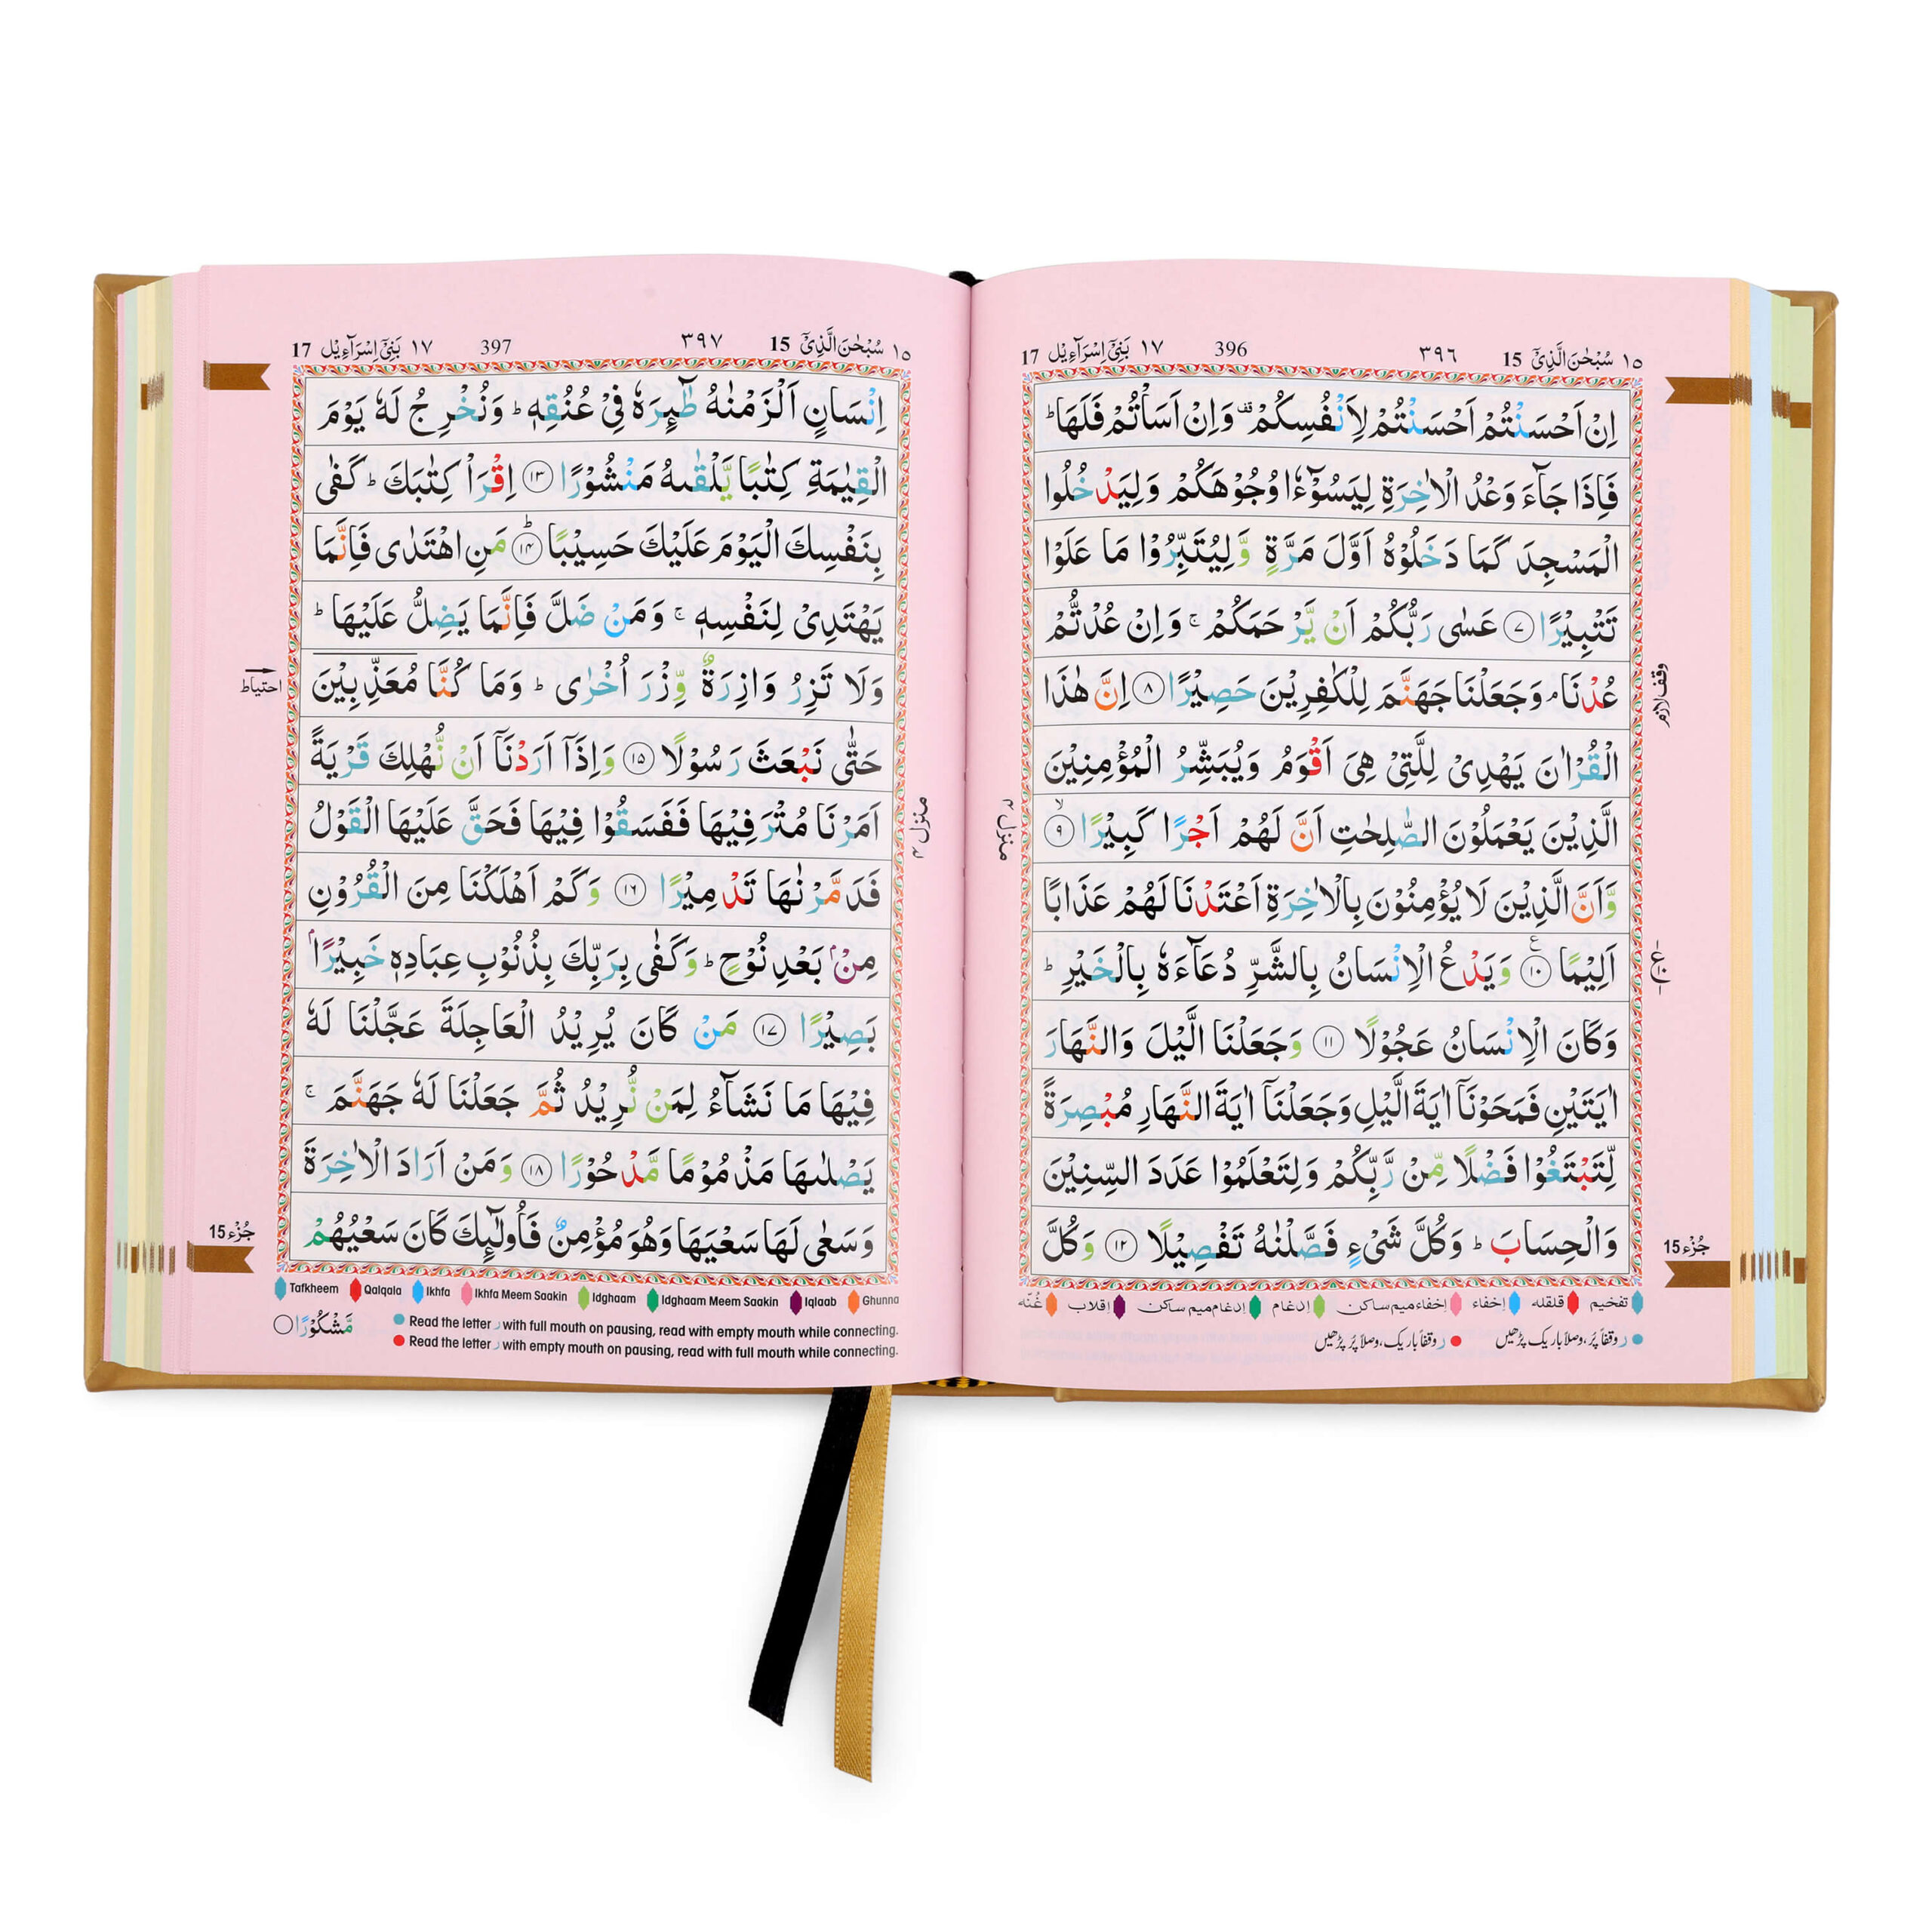 ١٥ سُبْحٰنَ الَّذِیْۤ 15 ٣٩٦ 396 ١٧ بَنِیْۤ اِسْرَآءِیْل 17
اِنْ اَحْسَنْتُمْ اَحْسَنْتُمْ لِاَنْفُسِكُمْ ۫ وَاِنْ اَسَاْتُمْ فَلَهَا ؕ
فَاِذَا جَآءَ وَعْدُ الْاٰخِرَةِ لِیَسُوْٓءٗا وُجُوْهَكُمْ وَلِیَدْخُلُوا
الْمَسْجِدَ كَمَا دَخَلُوْهُ اَوَّلَ مَرَّةٍ وَّلِیُتَبِّرُوْا مَا عَلَوْا
تَتْبِیْرًا ۝٧ عَسٰی رَبُّكُمْ اَنْ یَّرْحَمَكُمْ ۚ وَاِنْ عُدْتُّمْ
عُدْنَا ۘ وَجَعَلْنَا جَهَنَّمَ لِلْكٰفِرِیْنَ حَصِیْرًا ۝٨ اِنَّ هٰذَا
وقف لازم
الْقُرْاٰنَ یَهْدِیْ لِلَّتِیْ هِیَ اَقْوَمُ وَیُبَشِّرُ الْمُؤْمِنِیْنَ
الَّذِیْنَ یَعْمَلُوْنَ الصّٰلِحٰتِ اَنَّ لَهُمْ اَجْرًا كَبِیْرًا ۝٩ۙ
منزل ٤
وَّاَنَّ الَّذِیْنَ لَا یُؤْمِنُوْنَ بِالْاٰخِرَةِ اَعْتَدْنَا لَهُمْ عَذَابًا
اَلِیْمًا ۝١٠ۧ وَیَدْعُ الْاِنْسَانُ بِالشَّرِّ دُعَآءَهٗ بِالْخَیْرِ ؕ
وَكَانَ الْاِنْسَانُ عَجُوْلًا ۝١١ وَجَعَلْنَا الَّیْلَ وَالنَّهَارَ
اٰیَتَیْنِ فَمَحَوْنَاۤ اٰیَةَ الَّیْلِ وَجَعَلْنَاۤ اٰیَةَ النَّهَارِ مُبْصِرَةً
لِّتَبْتَغُوْا فَضْلًا مِّنْ رَّبِّكُمْ وَلِتَعْلَمُوْا عَدَدَ السِّنِیْنَ
وَالْحِسَابَ ؕ وَكُلَّ شَیْءٍ فَصَّلْنٰهُ تَفْصِیْلًا ۝١٢ وَكُلَّ
جُزْء 15
تفخیم قلقله إخفاء إخفاء میم ساكن إدغام إدغام میم ساكن إقلاب غُنّه
ر وقفاً پُر، وصلاً باریک پڑھیں ر وقفاً باریک، وصلاً پُر پڑھیں
١٥ سُبْحٰنَ الَّذِیْۤ 15 ٣٩٧ 397 ١٧ بَنِیْۤ اِسْرَآءِیْل 17
اِنْسَانٍ اَلْزَمْنٰهُ طٰٓىِٕرَهٗ فِیْ عُنُقِهٖ ؕ وَنُخْرِجُ لَهٗ یَوْمَ
الْقِیٰمَةِ كِتٰبًا یَّلْقٰىهُ مَنْشُوْرًا ۝١٣ اِقْرَاْ كِتٰبَكَ ؕ كَفٰی
بِنَفْسِكَ الْیَوْمَ عَلَیْكَ حَسِیْبًا ۝١٤ؕ مَنِ اهْتَدٰی فَاِنَّمَا
یَهْتَدِیْ لِنَفْسِهٖ ۚ وَمَنْ ضَلَّ فَاِنَّمَا یَضِلُّ عَلَیْهَا ؕ
وَلَا تَزِرُ وَازِرَةٌ وِّزْرَ اُخْرٰی ؕ وَمَا كُنَّا مُعَذِّبِیْنَ
احتیاط
حَتّٰی نَبْعَثَ رَسُوْلًا ۝١٥ وَاِذَاۤ اَرَدْنَاۤ اَنْ نُّهْلِكَ قَرْیَةً
اَمَرْنَا مُتْرَفِیْهَا فَفَسَقُوْا فِیْهَا فَحَقَّ عَلَیْهَا الْقَوْلُ
منزل ٤
فَدَمَّرْنٰهَا تَدْمِیْرًا ۝١٦ وَكَمْ اَهْلَكْنَا مِنَ الْقُرُوْنِ
مِنْۢ بَعْدِ نُوْحٍ ؕ وَكَفٰی بِرَبِّكَ بِذُنُوْبِ عِبَادِهٖ خَبِیْرًۢا
بَصِیْرًا ۝١٧ مَنْ كَانَ یُرِیْدُ الْعَاجِلَةَ عَجَّلْنَا لَهٗ
فِیْهَا مَا نَشَآءُ لِمَنْ نُّرِیْدُ ثُمَّ جَعَلْنَا لَهٗ جَهَنَّمَ ۚ
یَصْلٰىهَا مَذْمُوْمًا مَّدْحُوْرًا ۝١٨ وَمَنْ اَرَادَ الْاٰخِرَةَ
وَسَعٰی لَهَا سَعْیَهَا وَهُوَ مُؤْمِنٌ فَاُولٰٓىِٕكَ كَانَ سَعْیُهُمْ
جُزْء 15
Tafkheem Qalqala Ikhfa Ikhfa Meem Saakin Idghaam Idghaam Meem Saakin Iqlaab Ghunna
مَّشْكُوْرًا
Read the letter ر with full mouth on pausing, read with empty mouth while connecting.
Read the letter ر with empty mouth on pausing, read with full mouth while connecting.